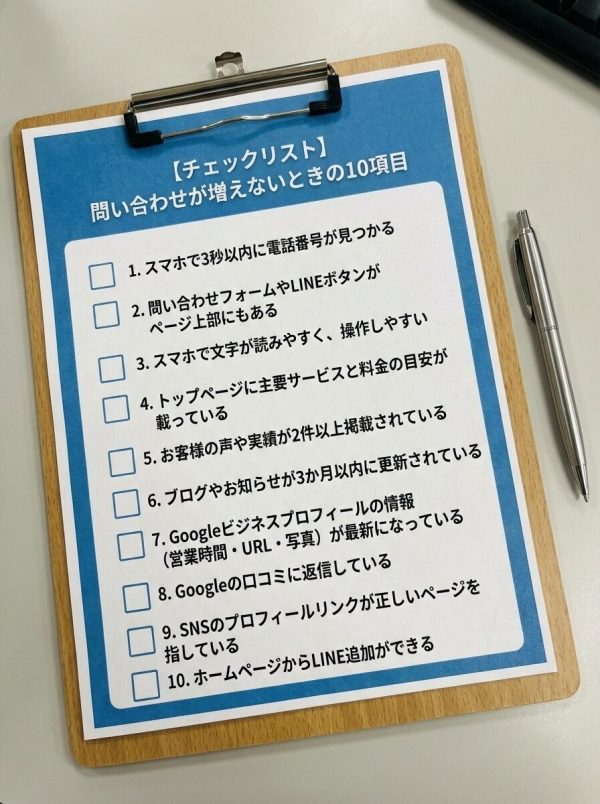 【チェックリスト】
問い合わせが増えないときの10項目
1. スマホで3秒以内に電話番号が見つかる
2. 問い合わせフォームやLINEボタンが
ページ上部にもある
3. スマホで文字が読みやすく、操作しやすい
4. トップページに主要サービスと料金の目安が
載っている
5. お客様の声や実績が2件以上掲載されている
6. ブログやお知らせが3か月以内に更新されている
7. Googleビジネスプロフィールの情報
（営業時間・URL・写真）が最新になっている
8. Googleの口コミに返信している
9. SNSのプロフィールリンクが正しいページを
指している
10. ホームページからLINE追加ができる